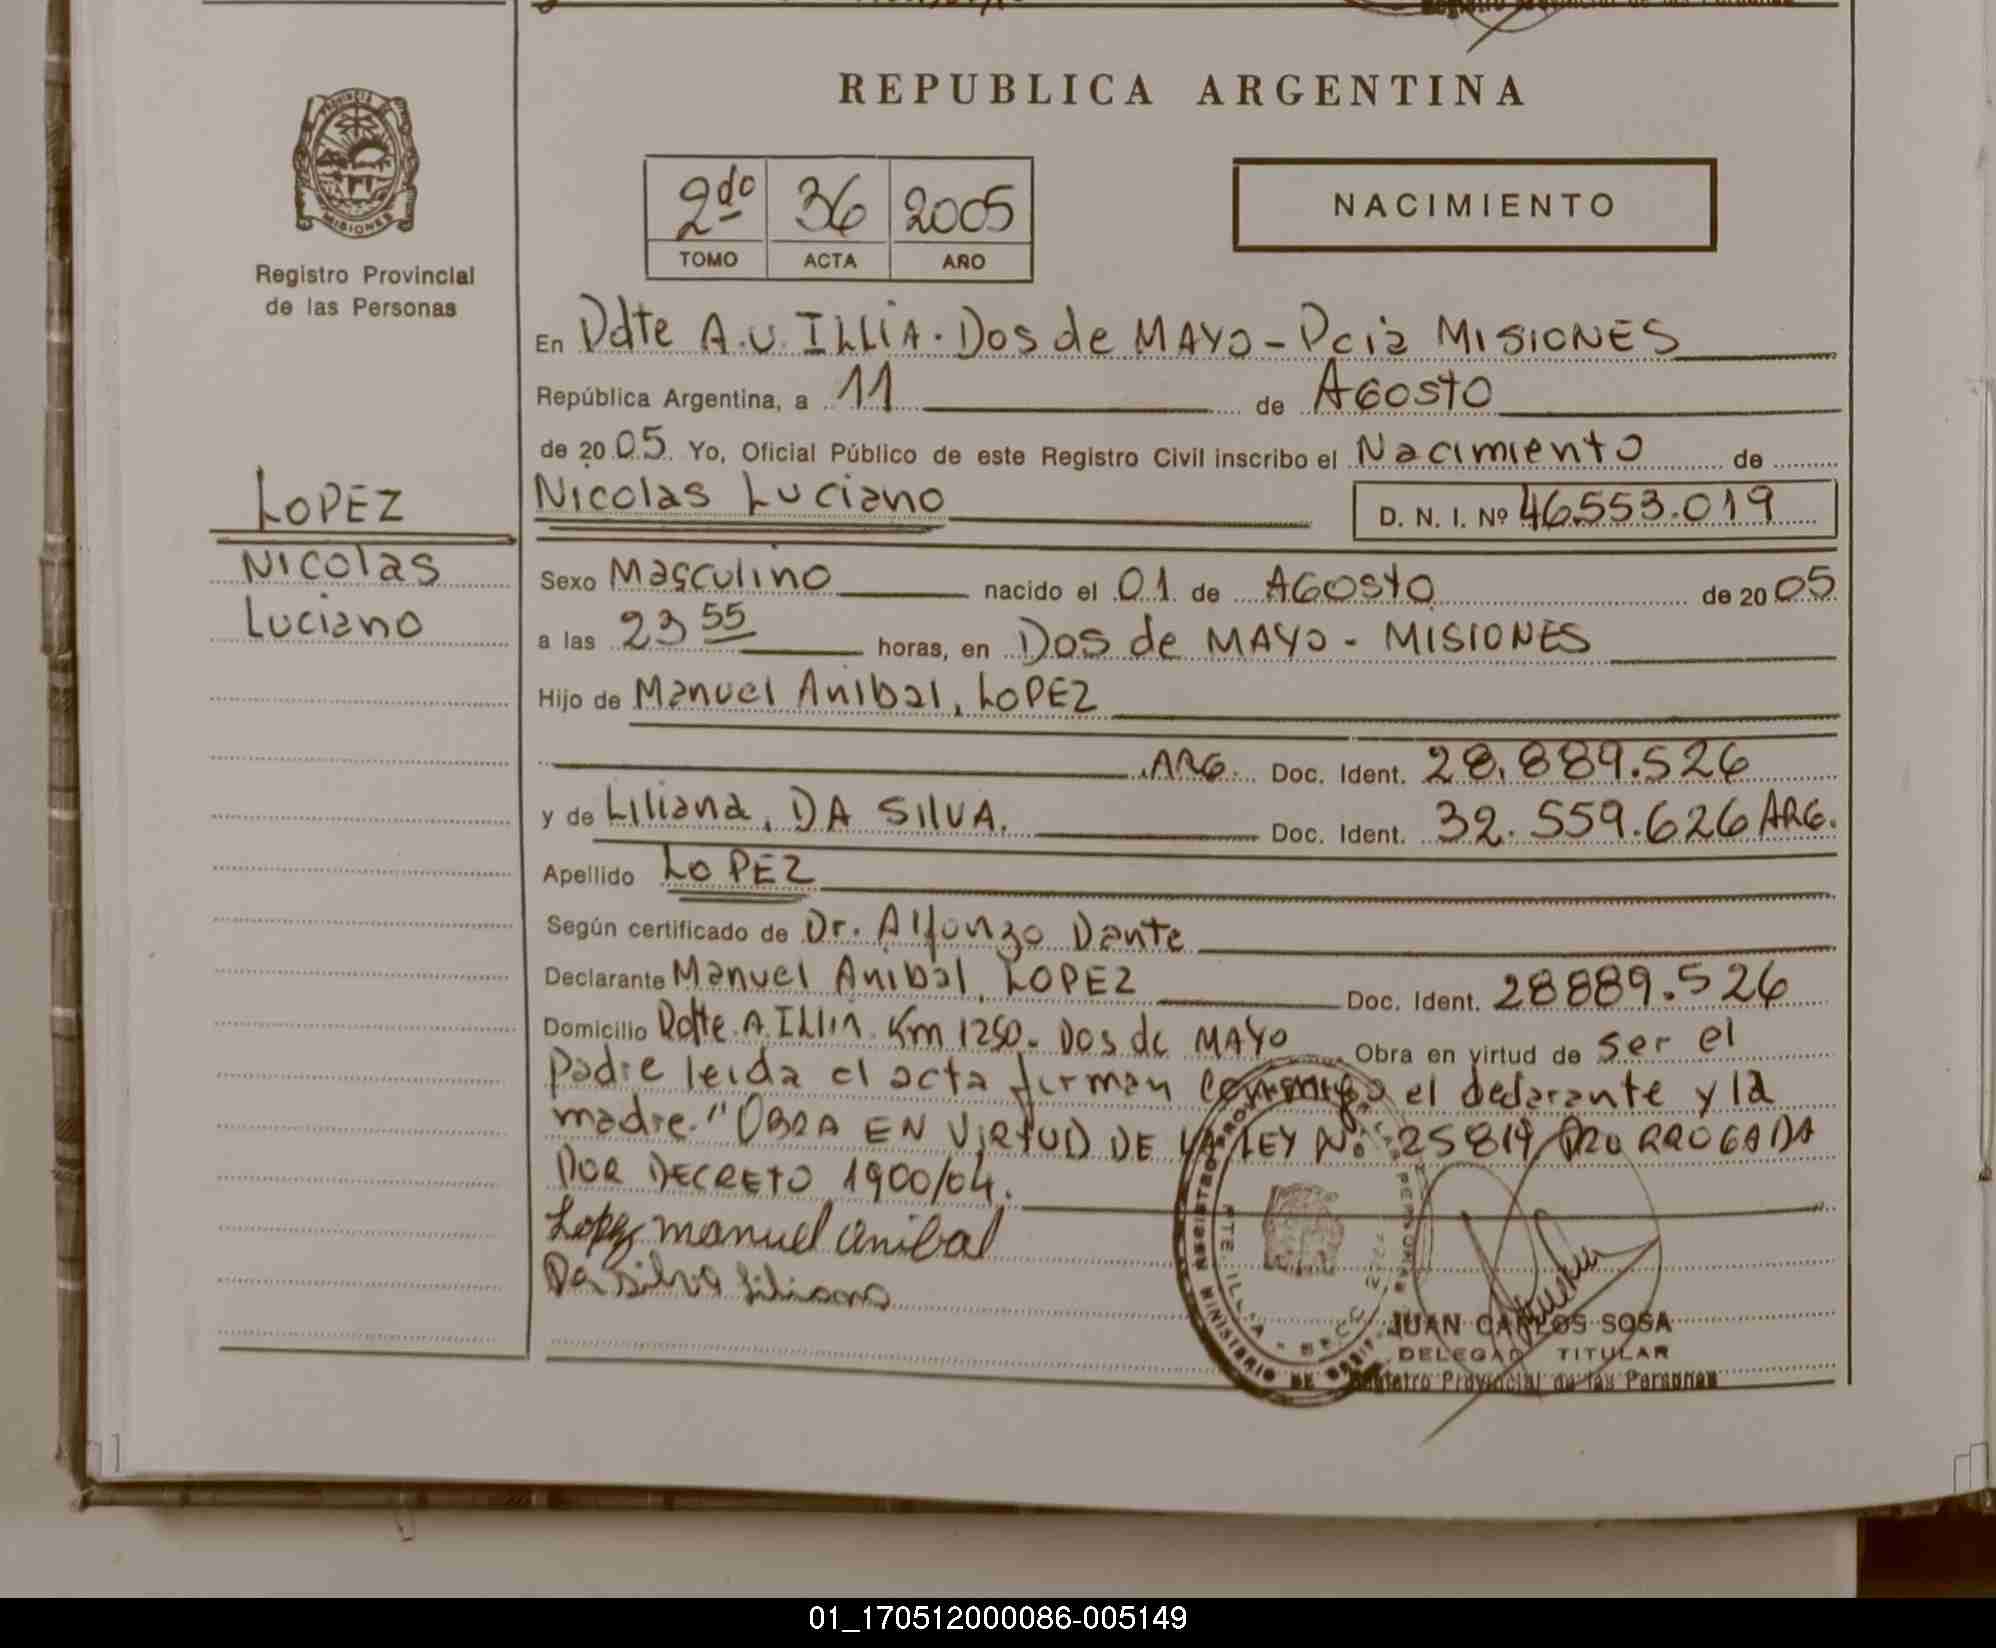 REPUBLICA ARGENTINA
PROVINCIA DE
MISIONES
Registro Provincial
de las Personas
2do 36 2005
TOMO ACTA AÑO
NACIMIENTO
En Pdte A.U. ILLIA. Dos de MAYO - Pcia MISIONES
República Argentina, a 11 de AGOSTO
de 2005 Yo, Oficial Público de este Registro Civil inscribo el Nacimiento de
LOPEZ
Nicolas Luciano
Nicolas Luciano D. N. I. Nº 46.553.019
Sexo Masculino nacido el 01 de AGOSTO de 2005
a las 23 55 horas, en Dos de MAYO - MISIONES
Hijo de Manuel Anibal, LOPEZ
ARG. Doc. Ident. 28.889.526
y de Liliana, DA SILVA. Doc. Ident. 32.559.626 ARG.
Apellido LOPEZ
Según certificado de Dr. Alfonzo Dante
Declarante Manuel Anibal, LOPEZ Doc. Ident. 28889.526
Domicilio Pdte. A. ILLIA. Km 1250. Dos de MAYO Obra en virtud de ser el
padre leida el acta firman conmigo el declarante y la
madre. "OBRA EN VIRTUD DE LA LEY No. 25819 PRORROGADA
POR DECRETO 1900/04.
Lopez manuel anibal
Da Silva Liliana
JUAN CARLOS SOSA
DELEGADO TITULAR
Registro Provincial de las Personas
01_170512000086-005149